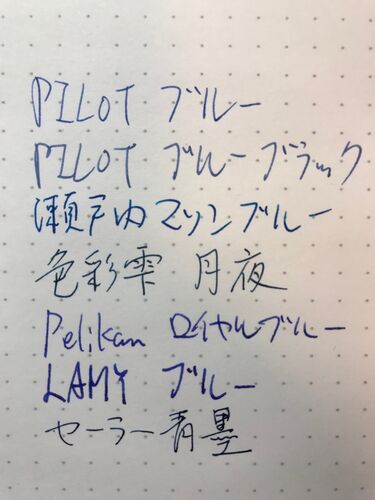 PILOT ブルー
PILOT ブルーブラック
瀬戸内マリンブルー
色彩雫 月夜
Pelikan ロイヤルブルー
LAMY ブルー
セーラー青墨